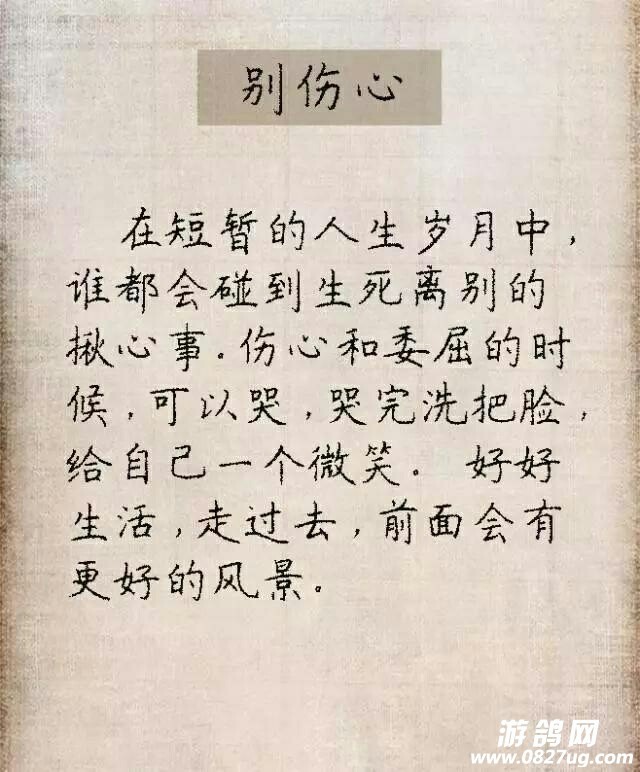 别伤心
在短暂的人生岁月中，
谁都会碰到生死离别的
揪心事。伤心和委屈的时
候，可以哭，哭完洗把脸，
给自己一个微笑。好好
生活，走过去，前面会有
更好的风景。
游鸽网
www.0827ug.com